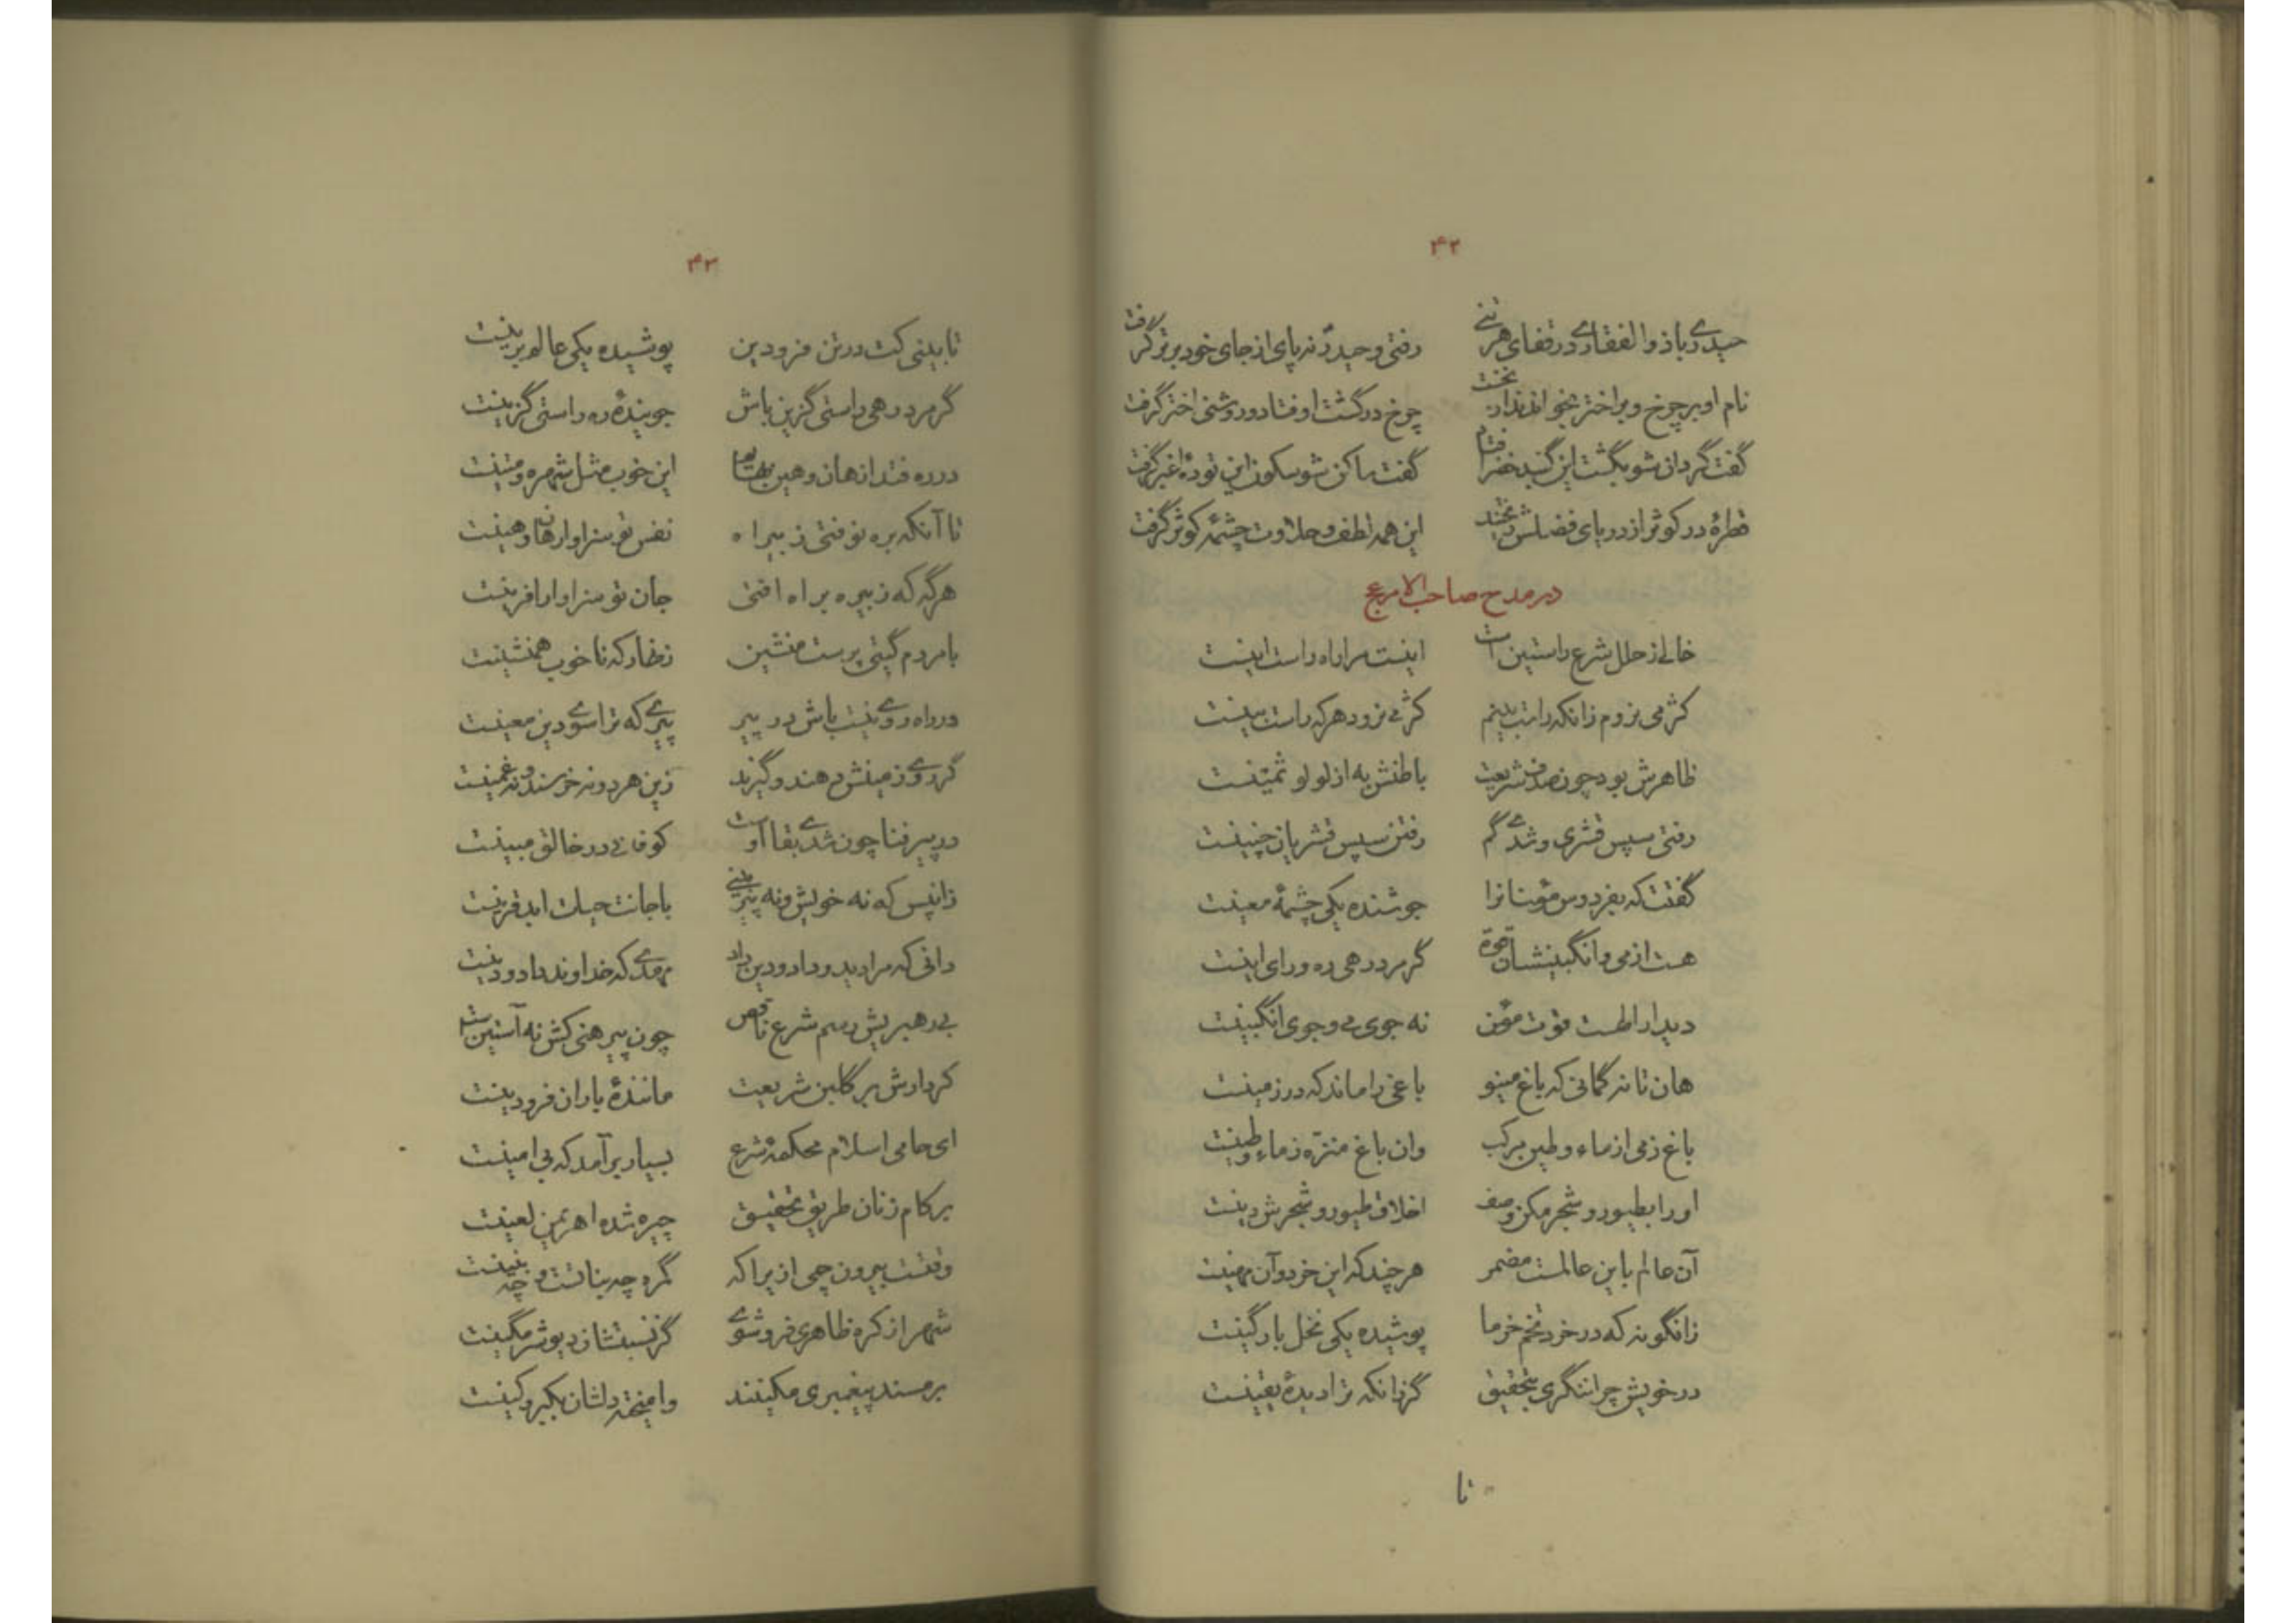 ۴۲
حیدری با ذوالفقاری در قفای هر تنی رفتی و حیدر نه پای از جای خود برتر گرفت
نام او بر چرخ و بر اختر بخواندند از نخست چرخ در گشت اوفتاد و روشنی اختر گرفت
گفت گردان شو بگشت این گنبد خضرا فتاد گفت ساکن شو سکون این تودهٔ اغبر گرفت
قطرهٔ در کوثر از دریای فضلش ریختند این همه لطف و حلاوت چشمهٔ کوثر گرفت
در مدح صاحب الامر عج
خالی ز خلل شرع راستین است اینست مرا راه راست اینست
کژ می نروم زانکه راست بینم کژ می نرود هر که راست بینست
ظاهرش بود چون صدف شریعت باطنش به از لولو ثمینست
رفتی سپس قشری و شدی گم رفتن سپس قشریان چنینست
گفتت که بفردوس مؤمنانرا جوشنده یکی چشمهٔ معینست
هست از می و انگبینشان قوة گر مرد رهی ره ورای اینست
دیدار اطست قوت مؤمن نه جوی می و جوی انگبینست
هان تا نه گمانی که باغ مینو باغی را ماند که در زمینست
باغ زمی از ماء و طین مرکب وان باغ منزه ز ماء و طینست
او را بطیور و شجر مکن وصف اخلاق طیور و شجرش دینست
آن عالم با این عالمست مضمر هر چند که این خرد و آن مهینست
زانگونه که در خرد تخم خرما پوشیده یکی نخل بارگینست
در خویش چرا ننگری بتحقیق گر زانکه ترا دیدهٔ یقینست
تا
۴۳
تا بینی کت در تن فرودین پوشیده یکی عالم برینست
گر مرد رهی راستی گزین باش جویندهٔ ره راستی گزینست
در ره فتد از هان و هین این خوب مثل شهره و متینست
تا آنکه بره نوفتی ز بیراه نفس تو سزاوار هان و هینست
هر گه که ز بیره براه افتی جان تو سزاوار افرینست
با مردم گیتی پرست منشین زنهار که ناخوب همنشینست
در راه روی نیست باش در پیر پیری که ترا سوی دین معینست
گردو زمینش دهند و گیرند زین هر دو نه خرسند و نه غمینست
در پیر فنا چون شدی بقا اوست کو فانی در خالق مبینست
زانپس که نه خویش و نه پیر بینی با جانت حیات ابد قرینست
دانی که مرا دید و داد و دین داد مهدی که خداوند داد و دینست
بی رهبریش رسم شرع ناقص چون پیرهنی کش نه آستین است
کردارش بر گلبن شریعت مانندهٔ باران فرودینست
ای حامی اسلام محکمهٔ شرع بسیار برآمد که بی امینست
بر کام زنان طریق تحقیق چیره شده اهریمن لعینست
وقتست بیرون چمی ازیرا که گمره چه بناتست و چه بنینست
شهر از کره ظاهری فروشوی
بر مسند پیغمبری مکینند وامیخته دلشان بکبر و کینست